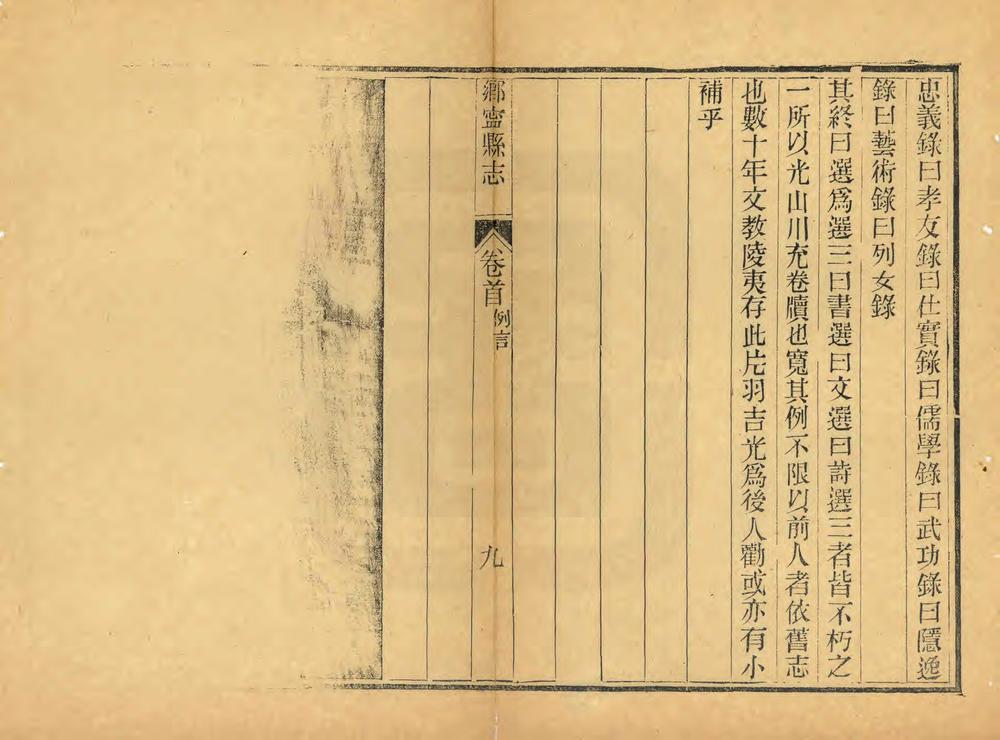 忠義錄曰孝友錄曰仕實錄曰儒學錄曰武功錄曰隱逸
錄曰藝術錄曰列女錄
其終曰選爲選三曰書選曰文選曰詩選三者皆不朽之
一所以光山川充卷牘也寬其例不限以前人者依舊志
也數十年文教陵夷存此片羽吉光爲後人勸或亦有小
補乎
鄉寧縣志
卷首
例言
九